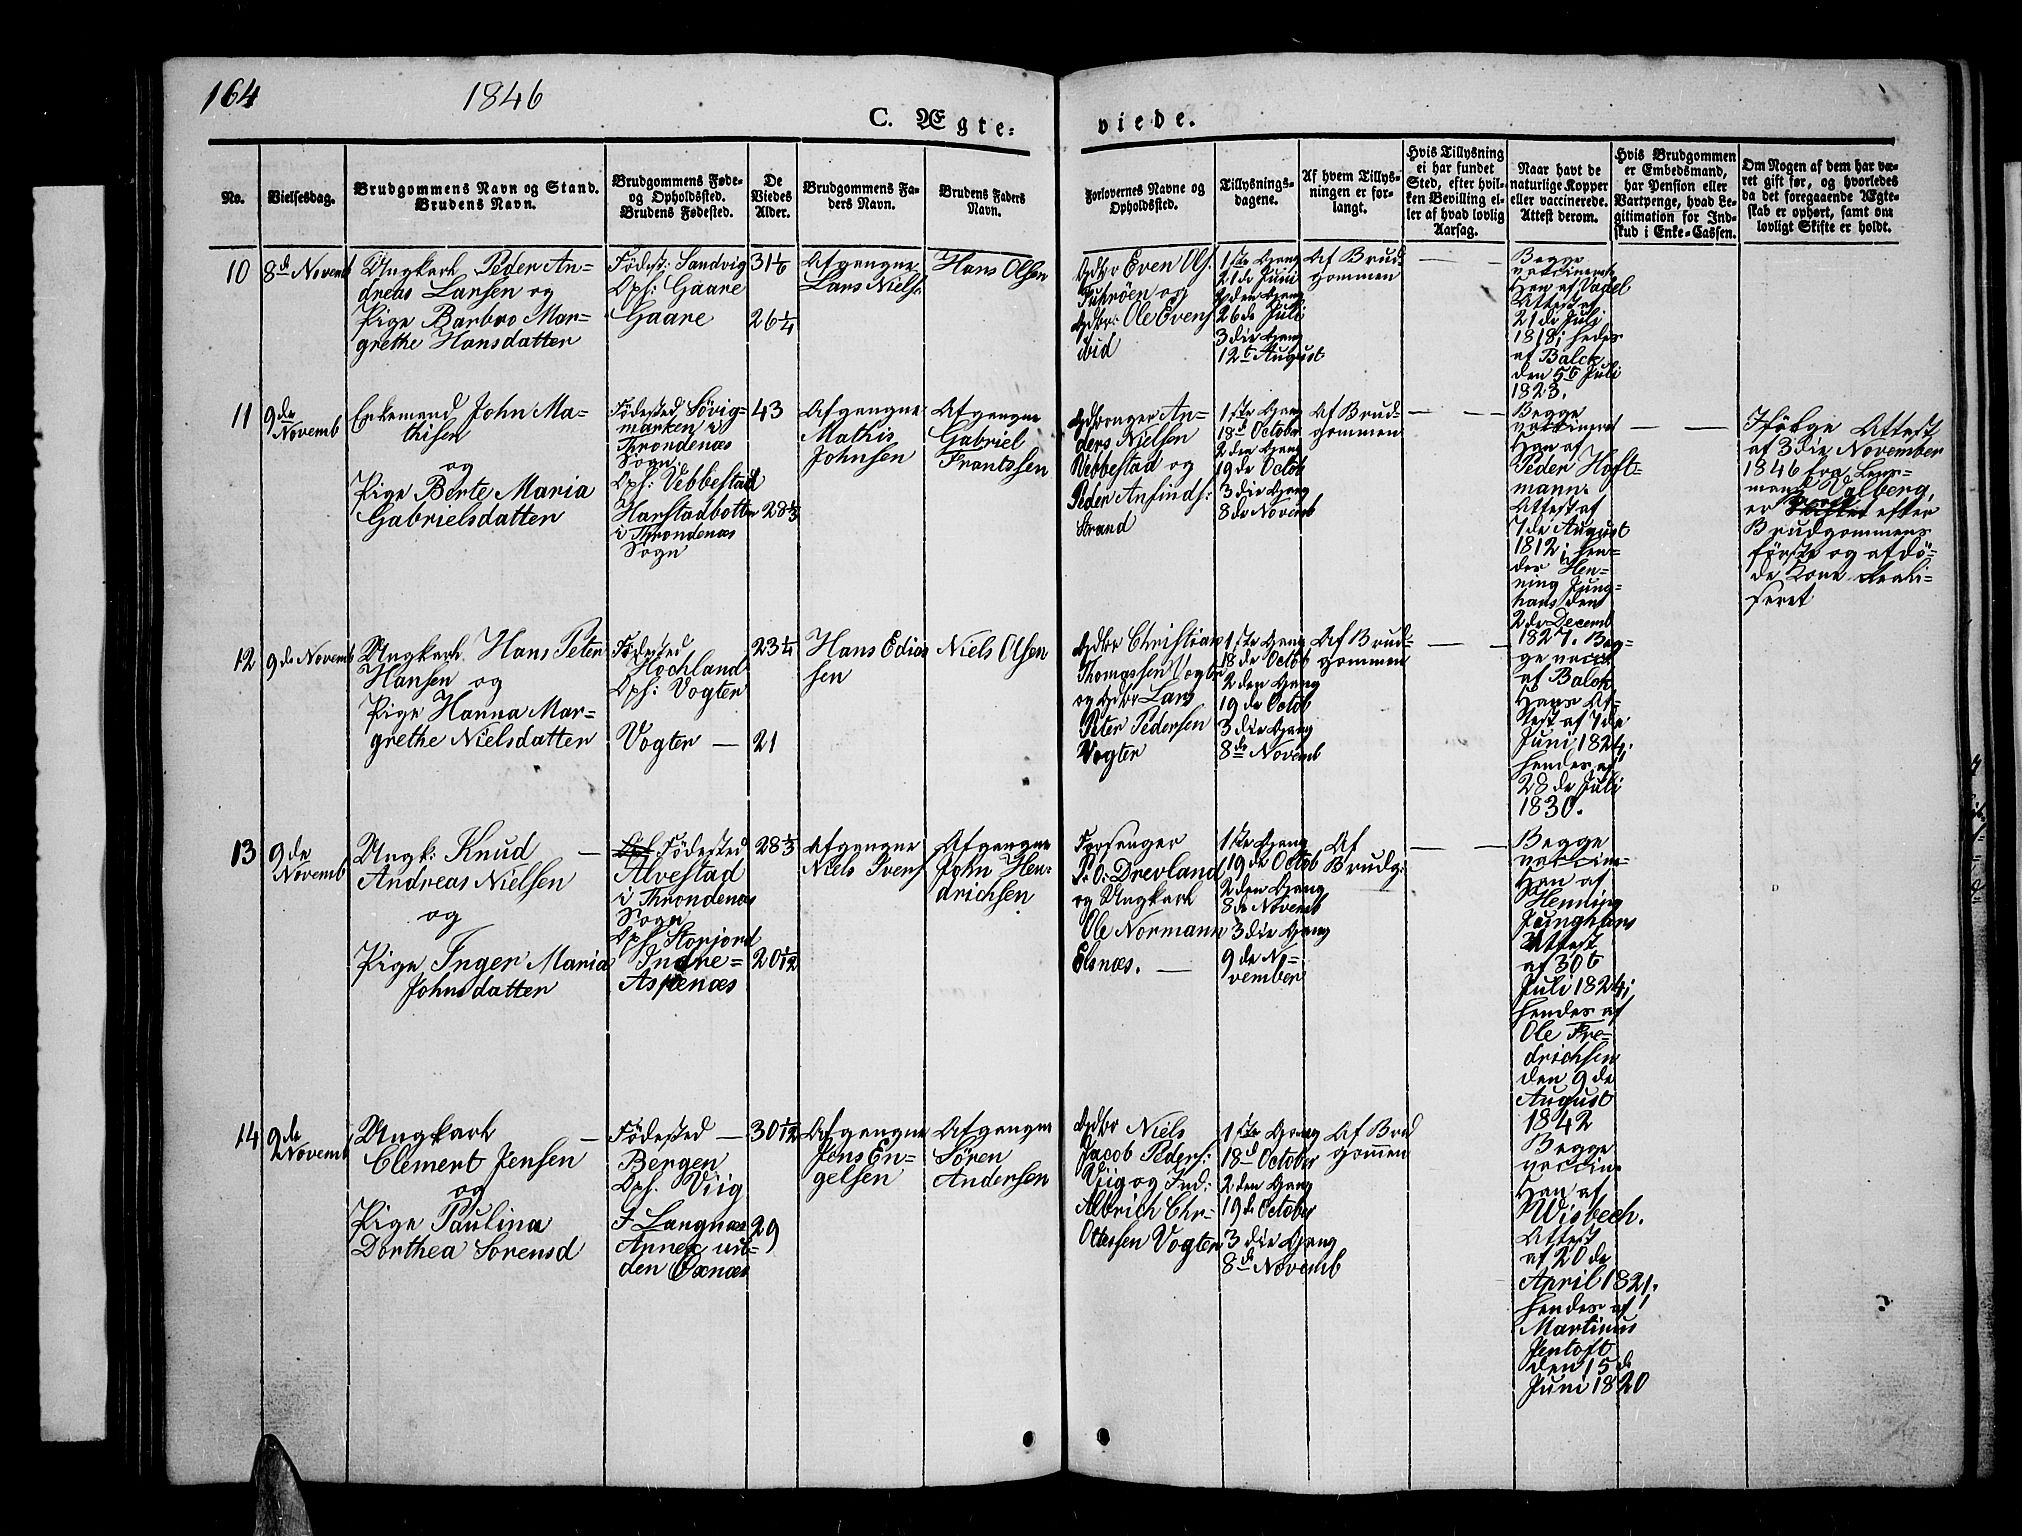 164
1846
C. Ægte=
viede.
No.
Vielsesdag.
Brudgommens Navn og Stand.
Brudens Navn.
Brudgommens Føde-
og Opholdssted.
Brudens Fødested.
De
Viedes
Alder.
Brudgommens Fa-
ders Navn.
Brudens Faders
Navn.
Forlovernes Navne og
Opholdssted.
Tillysnings-
dagene.
Af hvem Tillys-
ningen er for-
langt.
Hvis Tillysning
ei har fundet
Sted, efter hvil-
ken Bevilling el-
ler af hvad lovlig
Aarsag.
Naar havt de
naturlige Kopper
eller vaccinerede.
Attest derom.
Hvis Brudgommen
er Embedsmand,
har Pension eller
Vartpenge, hvad Le-
gitimation for Ind-
skud i Enke-Cassen.
Om Nogen af dem har væ-
ret gift før, og hvorledes
da det foregaaende Ægte-
skab er ophørt, samt om
lovligt Skifte er holdt.
10
8de Novemb
Ungkarl Peder An-
dreas Larsen og
Pige Barbro Mar-
grethe Hansdatter
Fødest: Sandvig
Oph: Gaare
Gaare
31 1/6
26 1/4
Afgangne
Lars Niels:
Hans Olsen
Gdbr Even Ols.
og
Gdbr: Ole Evens
ibid
1ste Gang
21de Juni
2den Gang
26de Juli
3die Gang
12te August
Af Brud
gommen
Begge
vaccinerede
Han af Vadel
Attest af
21de Juli
1818; hendes
af Balck
den 5te Juli
1823.
11
9de
Novemb
Enkemand John Ma-
thisen
og
Pige Berte Maria
Gabrielsdatter
Fødested Søvig-
marken i
Throndenæs
Sogn
Oph: Vebbestad
Harstadbotten
i Throndenæs
Sogn
43
28 1/3
Afgangne
Mathis
Johnsen
Afgangne
Gabriel
Frantssen
An-
ders Nielsen
Vebbestad og
Peder Anfinds:
Strand
1ste Gang
18de October
2den Gang
19de Octob
3die Gang
8de Novemb
Af Brud-
gommen
Begge
vaccineret
Han af
Peder Hoft-
mann.
Attest af
7de August
1812; hen-
des Hen-
ning Jung-
hans den
2de Decemb
1827.
Ifølge Attest
af 3die November
1846 fra Lens-
mand Valberg,
er efter
Brudgommens
første og afdø-
de Kone skali-
feret
12
9de Novemb
Ungkarl Hans Peter
Hansen og
Pige Hanna Mar-
grethe Nielsdatter
Fødested
Hochland
Oph: Vogter
Vogter —
23 1/4
21
Hans Edias
sen
Niels Olsen
Gdbr Christian
Thomassen Vogter
og Gdbr Lars
Peter Pedersen
Vogter
1ste Gang
18de Octob
2den Gang
19de Octob
3die Gang
8de Novemb
Af Brud-
gommen
Beg-
ge vacc.
af Balck
Hans At-
test af 7de
Juni 1824;
hendes af
28de Juli
1830.
13
9de
Novemb
Ungk: Knud
Andreas Nielsen
og
Pige Inger Maria
Johnsdatter
Fødested
Alvestad
i Throndenæs
Sogn
Oph Storjord
Indre=
Aspenæs
28 1/3
20 1/12
Afgangne
Niels Ivers
Afgangne
John Hen-
drichsen
Forsanger
P. O: Drevland
og Ungkarl
Ole Normann
Elsnæs. —
1ste Gang
19de Octob
2den Gang
8de Novemb
3die Gang
9de No-
vember
Af
Brudg:
Begge
vaccin-
Han af
Henning
Junghans
Attest
af 30te
Juli 1824;
hendes af
Ole Fre-
drichsen
den 9de
August
1842
14
9de
Novemb
Ungkarl —
Clement Jensen
og
Pige Paulina
Dorthea Sørensd
Fødested —
Bergen
Oph. Viig
F. Langnæs
30 1/12
29
Afgangne
Jens En-
gelsen
Afgangne
Søren
Andersen
Gdbr Niels
Jacob Peders:
Viig og Ind:
Albrich Chr-
Ottessen Vogter
1ste Gang
18de October
2den Gang
19de October
3die Gang
8de Novemb
Af Brud
gommen
Begge
vaccin-
Han af
Wisbech.
Attest
af 20de
April 1821.
hendes af
Martinus
Jentoft
den 15de
Juni 1820